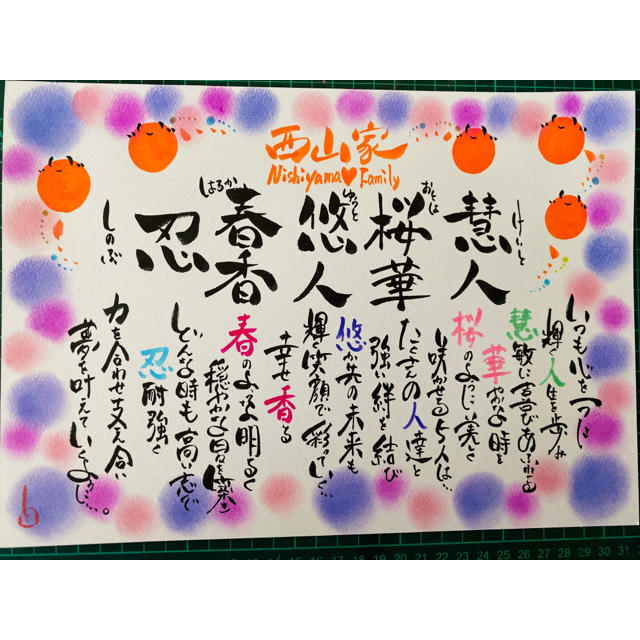 西山家
Nishiyama♥Family
慧人
けいと
桜華
おとは
悠人
ゆうと
春香
はるか
忍
しのぶ
いつも心を一つに
輝く人生を歩み
慧敏に喜びあふれる
華やかな時を
桜のように美しく
咲かせる5人は…
たくさんの人達と
強い絆を結び
悠か先の未来も
輝く笑顔で彩っていく…
幸せ香る
春のような明るく
穏やかな日々を築き
どんな時も高い志で
忍耐強く
力を合わせ支え合い
夢を叶えていくように…。